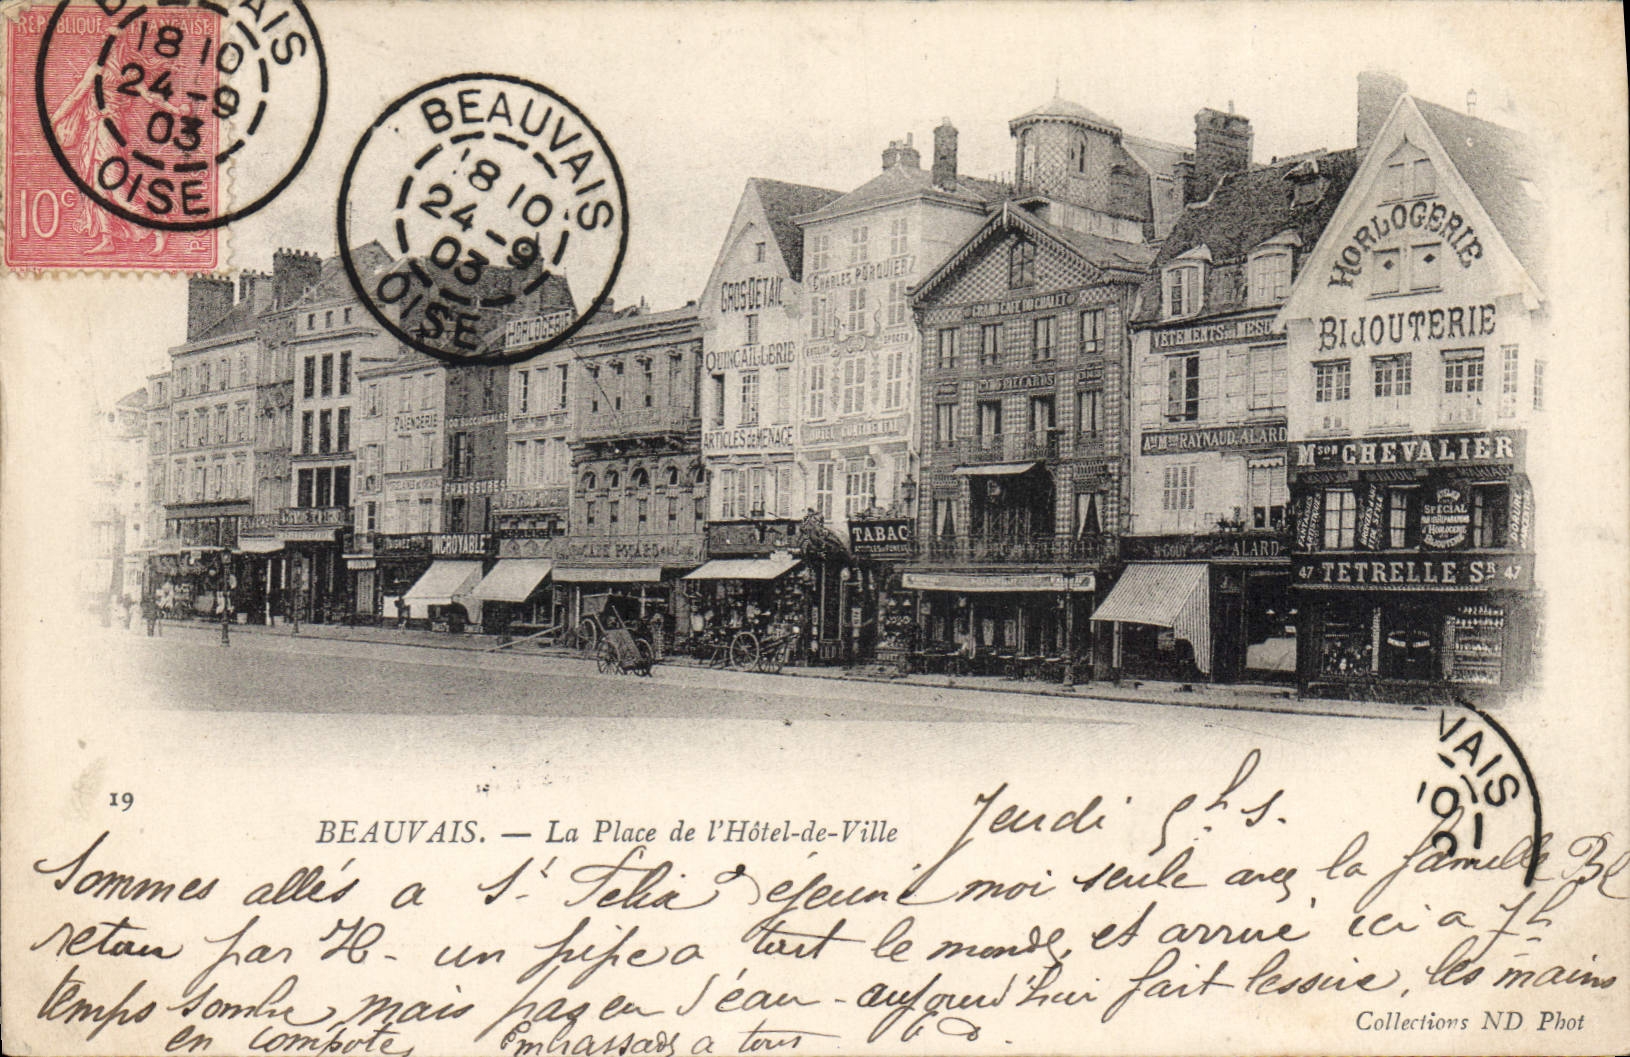 RÉPUBLIQUE FRANÇAISE
10c
BEAUVAIS
18 10
24 -9
03
OISE
BEAUVAIS
18 10
24 -9
03
OISE
HORLOGERIE
FAIENCERIE
100 SUCCURSALES
CHAUSSURES
INCROYABLE
GROS-DETAIL
QUINCAILLERIE
ARTICLES de MENAGE
CHARLES PORQUIER
TABAC
GRAND CAFÉ DU CHALET
BILLARDS
VETEMENTS SUR MESURE
Anc Mson RAYNAUD, ALARD
ALARD
HORLOGERIE
BIJOUTERIE
Mson CHEVALIER
SPECIAL
DORURE
ARGENTURE
47 TETRELLE Sr 47
VAIS
19
BEAUVAIS. — La Place de l'Hôtel-de-Ville
Jeudi 5h s.
Sommes allés a St Felix Déjeuné moi seule avec la famille Bl
retour par H - un pipe a tout le monde, et arrivé ici a 7h
temps sombre, mais pas eu d'eau - aujourd'hui fait lessive, les mains
en compote, Embrassades a tous
Collections ND Phot